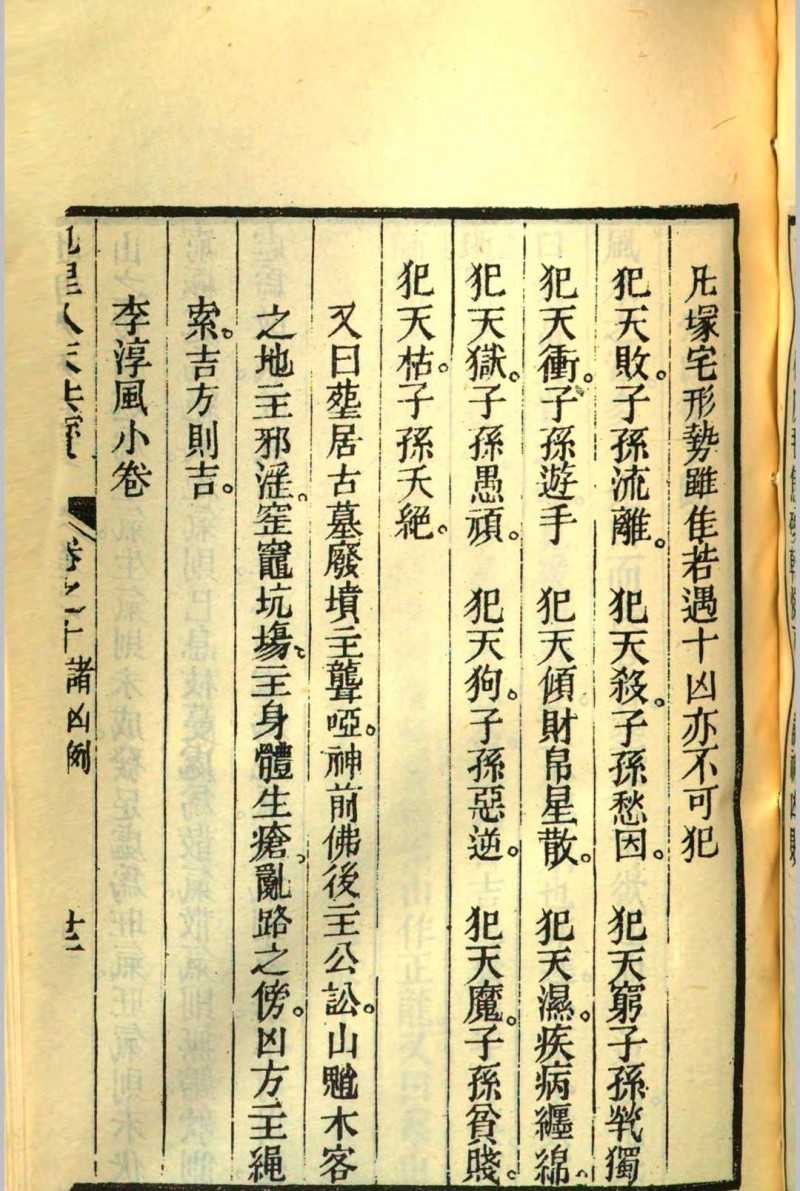 凡塚宅形勢雖佳若遇十凶亦不可犯
犯天敗。子孫流離。　犯天殺。子孫愁因。　犯天窮子孫煢獨
犯天衝。子孫遊手　犯天傾財帛星散。　犯天濕。疾病纏綿。
犯天獄。子孫愚頑。　犯天狗。子孫惡逆。　犯天魔。子孫貧賤。
犯天枯。子孫夭絕。
又曰塟居古墓廢墳主聾啞。神前佛後主公訟。山魈木客
之地主邪淫。窑竈坑塲、主身體生瘡、亂路之傍。凶方主繩
索。吉方則吉。
李淳風小卷
卷之十 諸凶例
十三